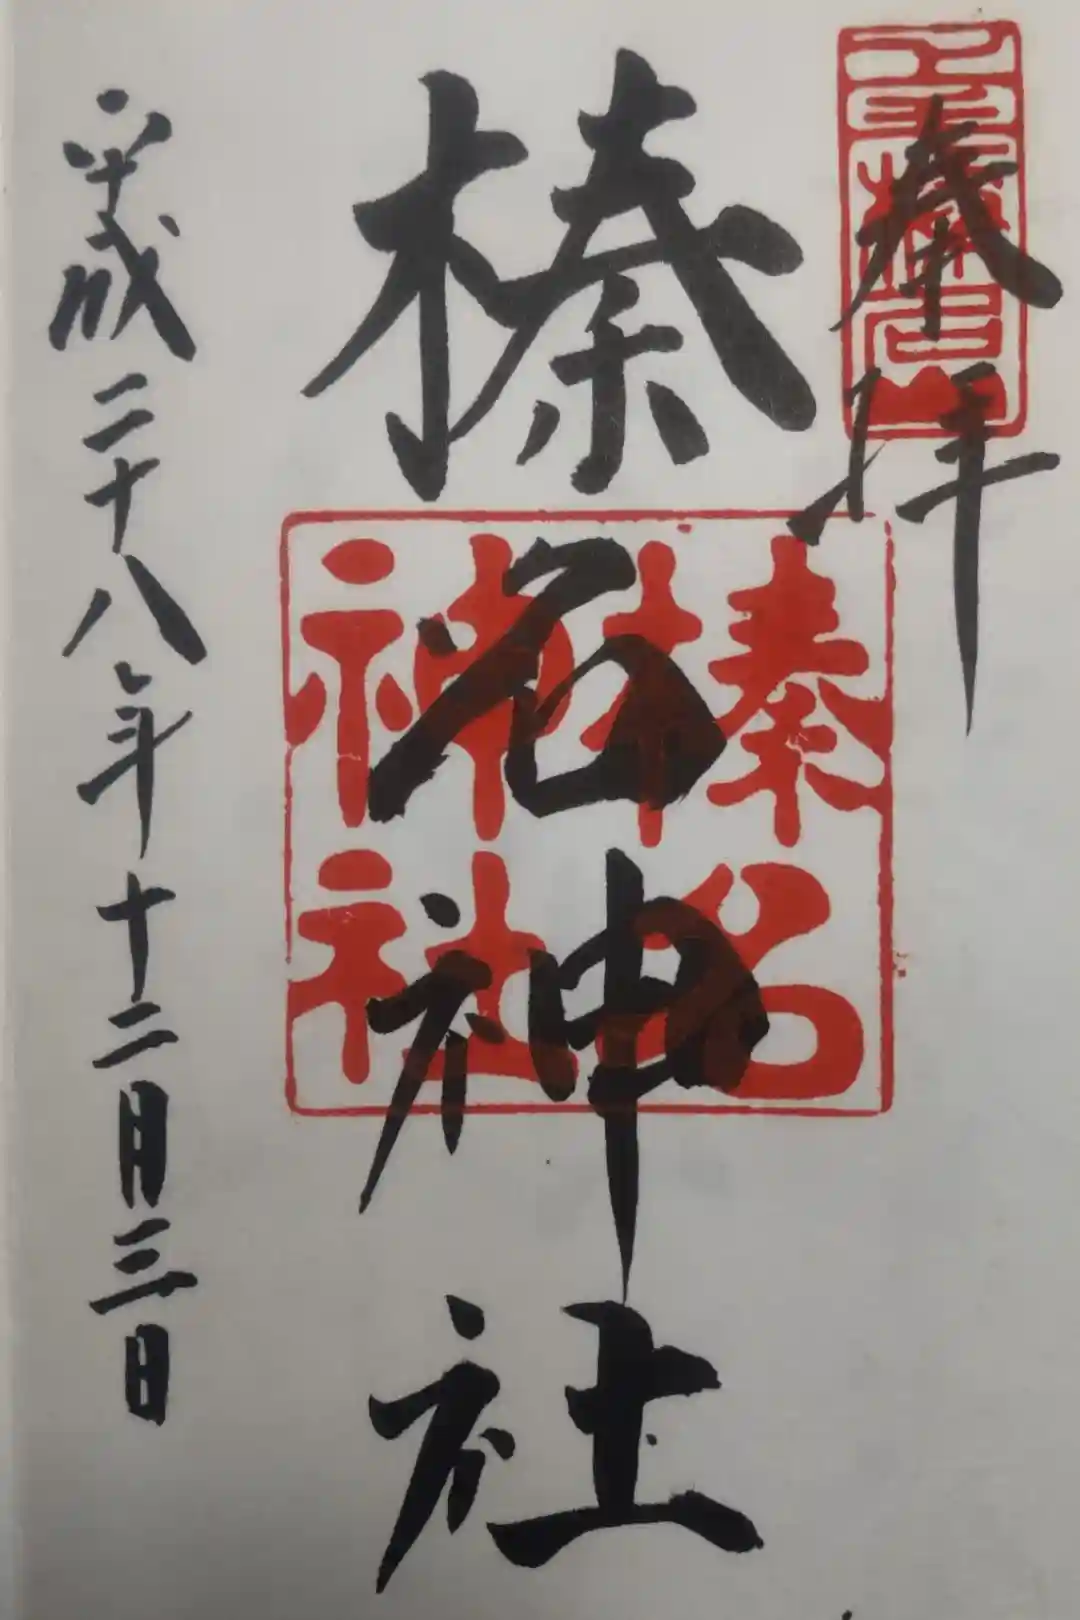 奉拝
上毛榛名山
榛名神社
榛名神社
平成二十八年十二月三日